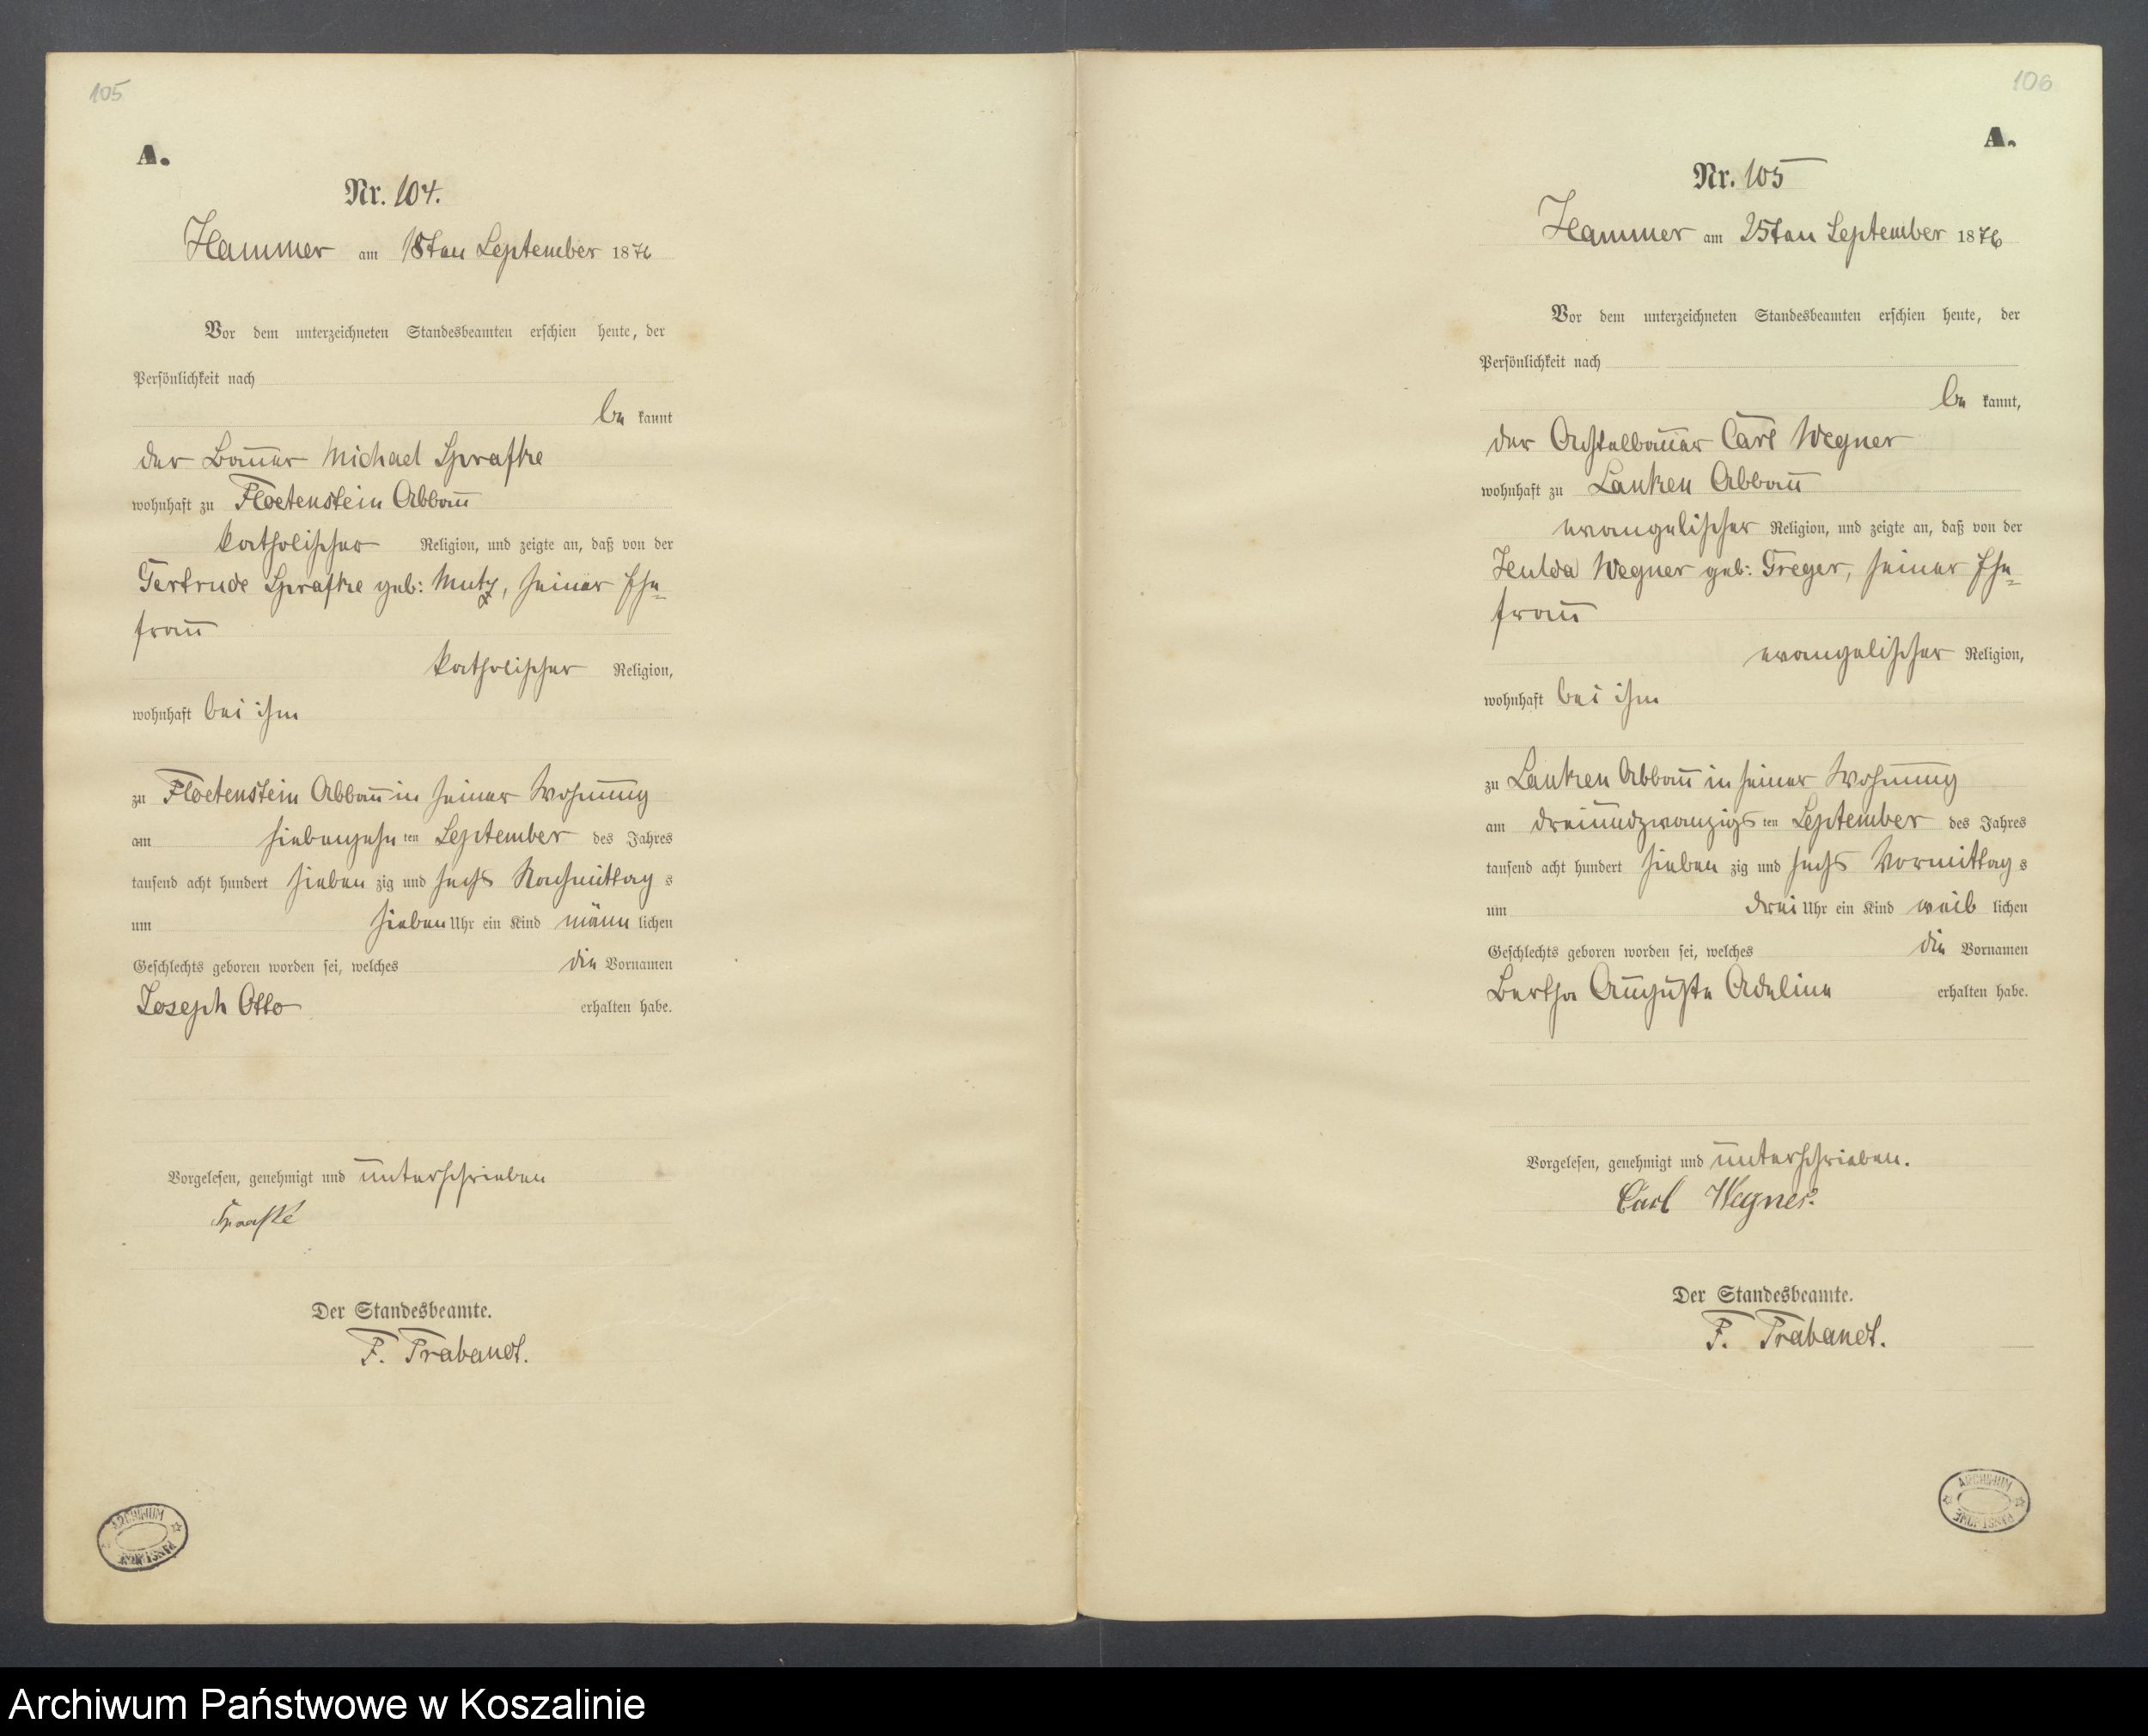 105
A.
Nr. 104.
Hammer am 18ten September 1876
Vor dem unterzeichneten Standesbeamten erschien heute, der
Persönlichkeit nach
be kannt
der Bauer Michael Sprafke
wohnhaft zu Floetenstein Abbau
katholischer Religion, und zeigte an, daß von der
Gertrude Sprafke geb: Mutz, seiner Ehe=
frau
katholischer Religion,
wohnhaft bei ihm
zu Floetenstein Abbau in seiner Wohnung
am siebenzehn ten September des Jahres
tausend acht hundert sieben zig und sechs Nachmittag s
um sieben Uhr ein Kind männ lichen
Geschlechts geboren worden sei, welches die Vornamen
Joseph Otto erhalten habe.
Vorgelesen, genehmigt und unterschrieben
Sprafke
Der Standesbeamte.
F. Trabandt.
ARCHIWUM PAŃSTWOWE
106
A.
Nr. 105
Hammer am 25ten September 1876
Vor dem unterzeichneten Standesbeamten erschien heute, der
Persönlichkeit nach
be kannt,
der Achtelbauer Carl Wegner
wohnhaft zu Lanken Abbau
evangelischer Religion, und zeigte an, daß von der
Hulda Wegner geb: Greger, seiner Ehe=
frau
evangelischer Religion,
wohnhaft bei ihm
zu Lanken Abbau in seiner Wohnung
am dreiundzwanzigs ten September des Jahres
tausend acht hundert sieben zig und sechs Vormittag s
um drei Uhr ein Kind weib lichen
Geschlechts geboren worden sei, welches die Vornamen
Bertha Auguste Adeline erhalten habe.
Vorgelesen, genehmigt und unterschrieben.
Carl Wegner.
Der Standesbeamte.
F. Trabandt.
ARCHIWUM PAŃSTWOWE
Archiwum Państwowe w Koszalinie